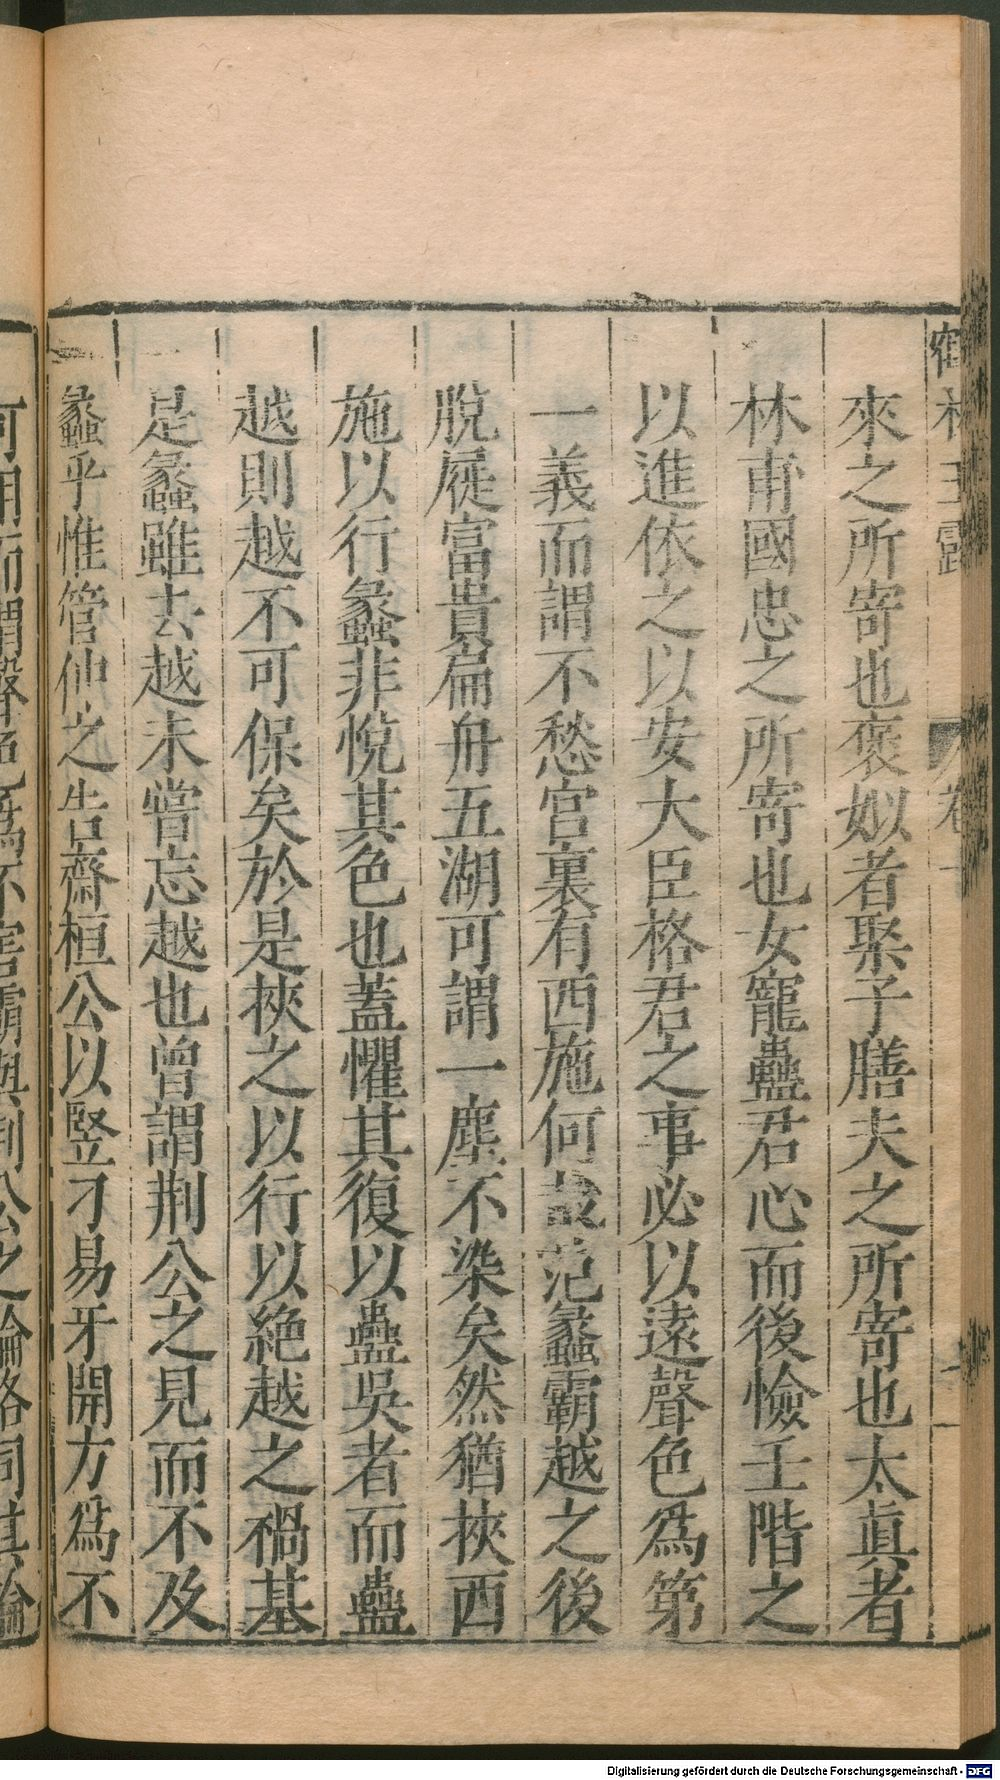 來之所寄也褒姒者聚子膳夫之所寄也太眞者
林甫國忠之所寄也女寵蠱君心而後憸壬階之
以進依之以安大臣格君之事必以遠聲色爲第
一義而謂不愁宮裏有西施何哉范蠡霸越之後
脫屣富貴扁舟五湖可謂一塵不染矣然猶挾西
施以行蠡非悅其色也蓋懼其復以蠱吳者而蠱
越則越不可保矣於是挾之以行以絕越之禍基
是蠡雖去越未嘗忘越也曾謂荆公之見而不及
蠡乎惟管仲之告齋桓公以竪刁易牙開方爲不
可用而謂聲色爲不害霸與荆公之論略同其論
Digitalisierung gefördert durch die Deutsche Forschungsgemeinschaft - DFG